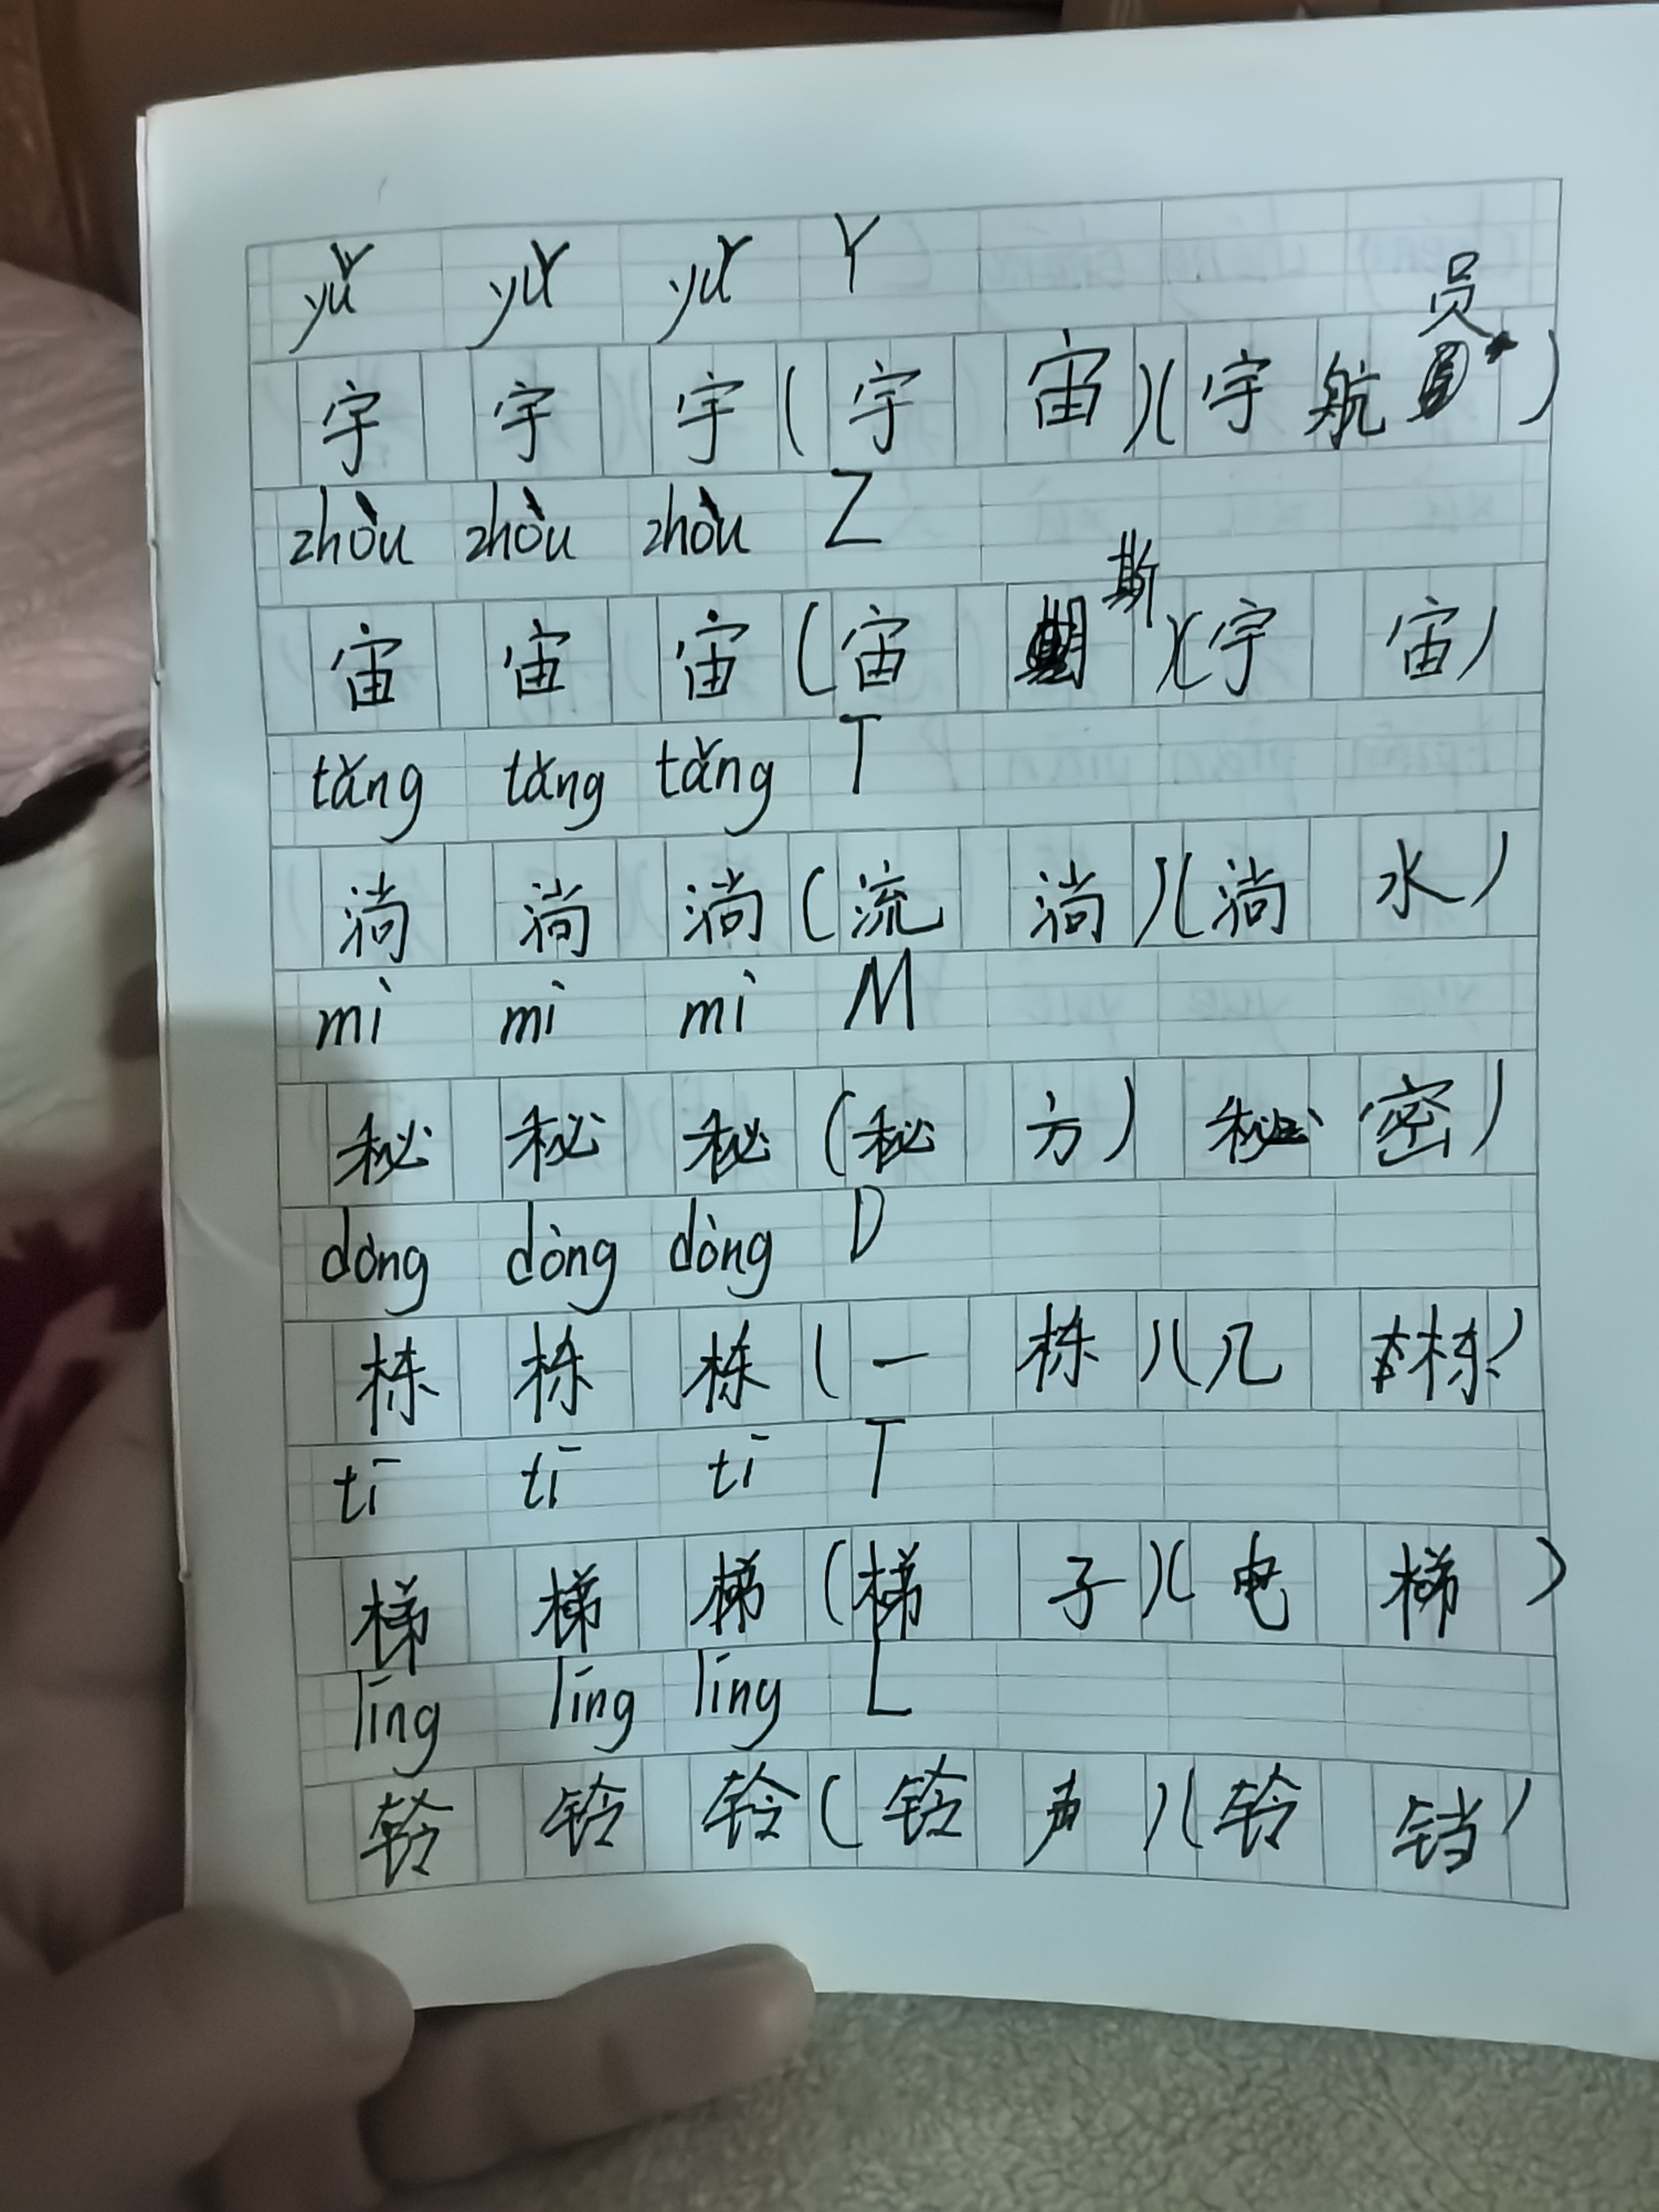 yǔ yǔ yǔ Y
宇 宇 宇 (宇 宙)(宇航员)
zhòu zhòu zhòu Z
宙 宙 宙 (宙 斯)(宇 宙)
tǎng tǎng tǎng T
淌 淌 淌 (流 淌)(淌 水)
mì mì mì M
秘 秘 秘 (秘 方) 秘 密)
dòng dòng dòng D
栋 栋 栋 (一 栋)(几 栋)
tī tī tī T
梯 梯 梯 (梯 子)(电 梯)
līng líng líng L
铃 铃 铃 (铃 声)(铃 铛)